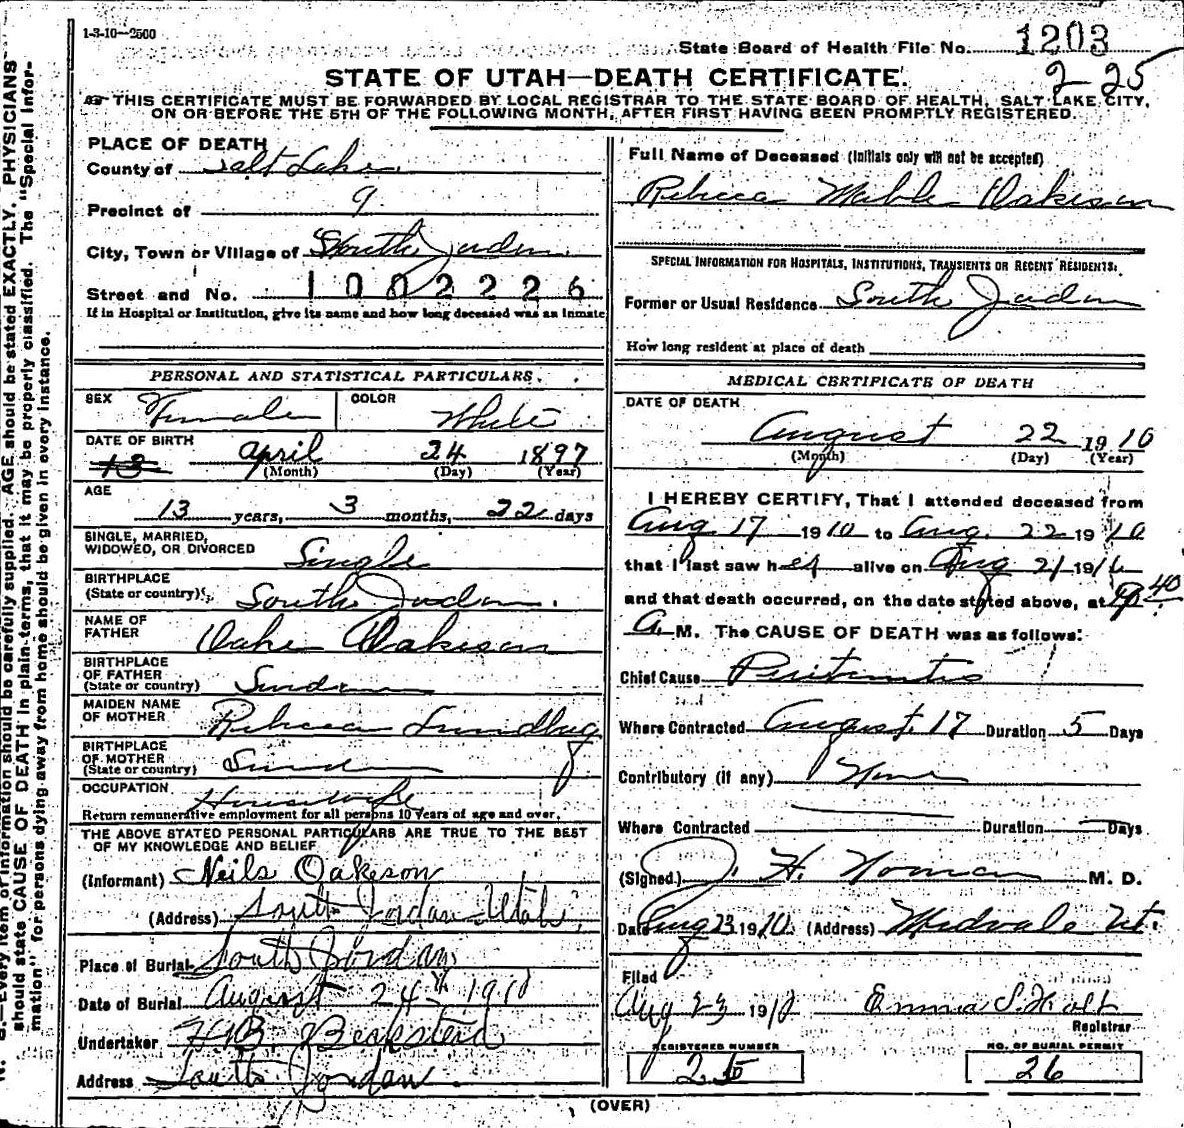 1-3-10—2500
State Board of Health File No. 1203
2-25
STATE OF UTAH—DEATH CERTIFICATE.
THIS CERTIFICATE MUST BE FORWARDED BY LOCAL REGISTRAR TO THE STATE BOARD OF HEALTH, SALT LAKE CITY,
ON OR BEFORE THE 5TH OF THE FOLLOWING MONTH, AFTER FIRST HAVING BEEN PROMPTLY REGISTERED.
PLACE OF DEATH
County of Salt Lake
Precinct of 9
City, Town or Village of South Jordan
Street and No. 1002226
If in Hospital or Institution, give its name and how long deceased was an inmate
PERSONAL AND STATISTICAL PARTICULARS.
SEX Female COLOR White
DATE OF BIRTH
13 April 24 1897
(Month) (Day) (Year)
AGE
13 years, 3 months, 22 days
SINGLE, MARRIED,
WIDOWED, OR DIVORCED Single
BIRTHPLACE
(State or country) South Jordan.
NAME OF
FATHER Oake Oakeson
BIRTHPLACE
OF FATHER
(State or country)
MAIDEN NAME
OF MOTHER Rebecca
BIRTHPLACE
OF MOTHER
(State or country)
OCCUPATION
Housewife
Return remunerative employment for all persons 10 years of age and over.
THE ABOVE STATED PERSONAL PARTICULARS ARE TRUE TO THE BEST
OF MY KNOWLEDGE AND BELIEF
(Informant) Neils Oakeson
(Address) South Jordan Utah,
Place of Burial South Jordan
Date of Burial August 24th 1910
Undertaker Beckstead
Address South Jordan.
Full Name of Deceased (Initials only will not be accepted)
Rebecca Mable Oakeson
SPECIAL INFORMATION FOR HOSPITALS, INSTITUTIONS, TRANSIENTS OR RECENT RESIDENTS.
Former or Usual Residence South Jordan
How long resident at place of death
MEDICAL CERTIFICATE OF DEATH
DATE OF DEATH
August 22 1910
(Month) (Day) (Year)
I HEREBY CERTIFY, That I attended deceased from
Aug 17 1910 to Aug. 22 1910
that I last saw her alive on Aug 21 1910
and that death occurred, on the date stated above, at 40
A. M. The CAUSE OF DEATH was as follows:
Chief Cause Peritonitis
Where Contracted August. 17 Duration 5 Days
Contributory (if any) None
Where Contracted Duration Days
(Signed) J. H. Noman M. D.
Date Aug 23 1910. (Address) Midvale Ut.
Filed
Aug 23 1910 Emma S. Holt
Registrar
REGISTERED NUMBER NO. OF BURIAL PERMIT
25 26
(OVER)
N. B.—Every item of information should be carefully supplied. AGE should be stated EXACTLY. PHYSICIANS
should state CAUSE OF DEATH in plain terms, that it may be properly classified. The "Special Infor-
mation" for persons dying away from home should be given in every instance.